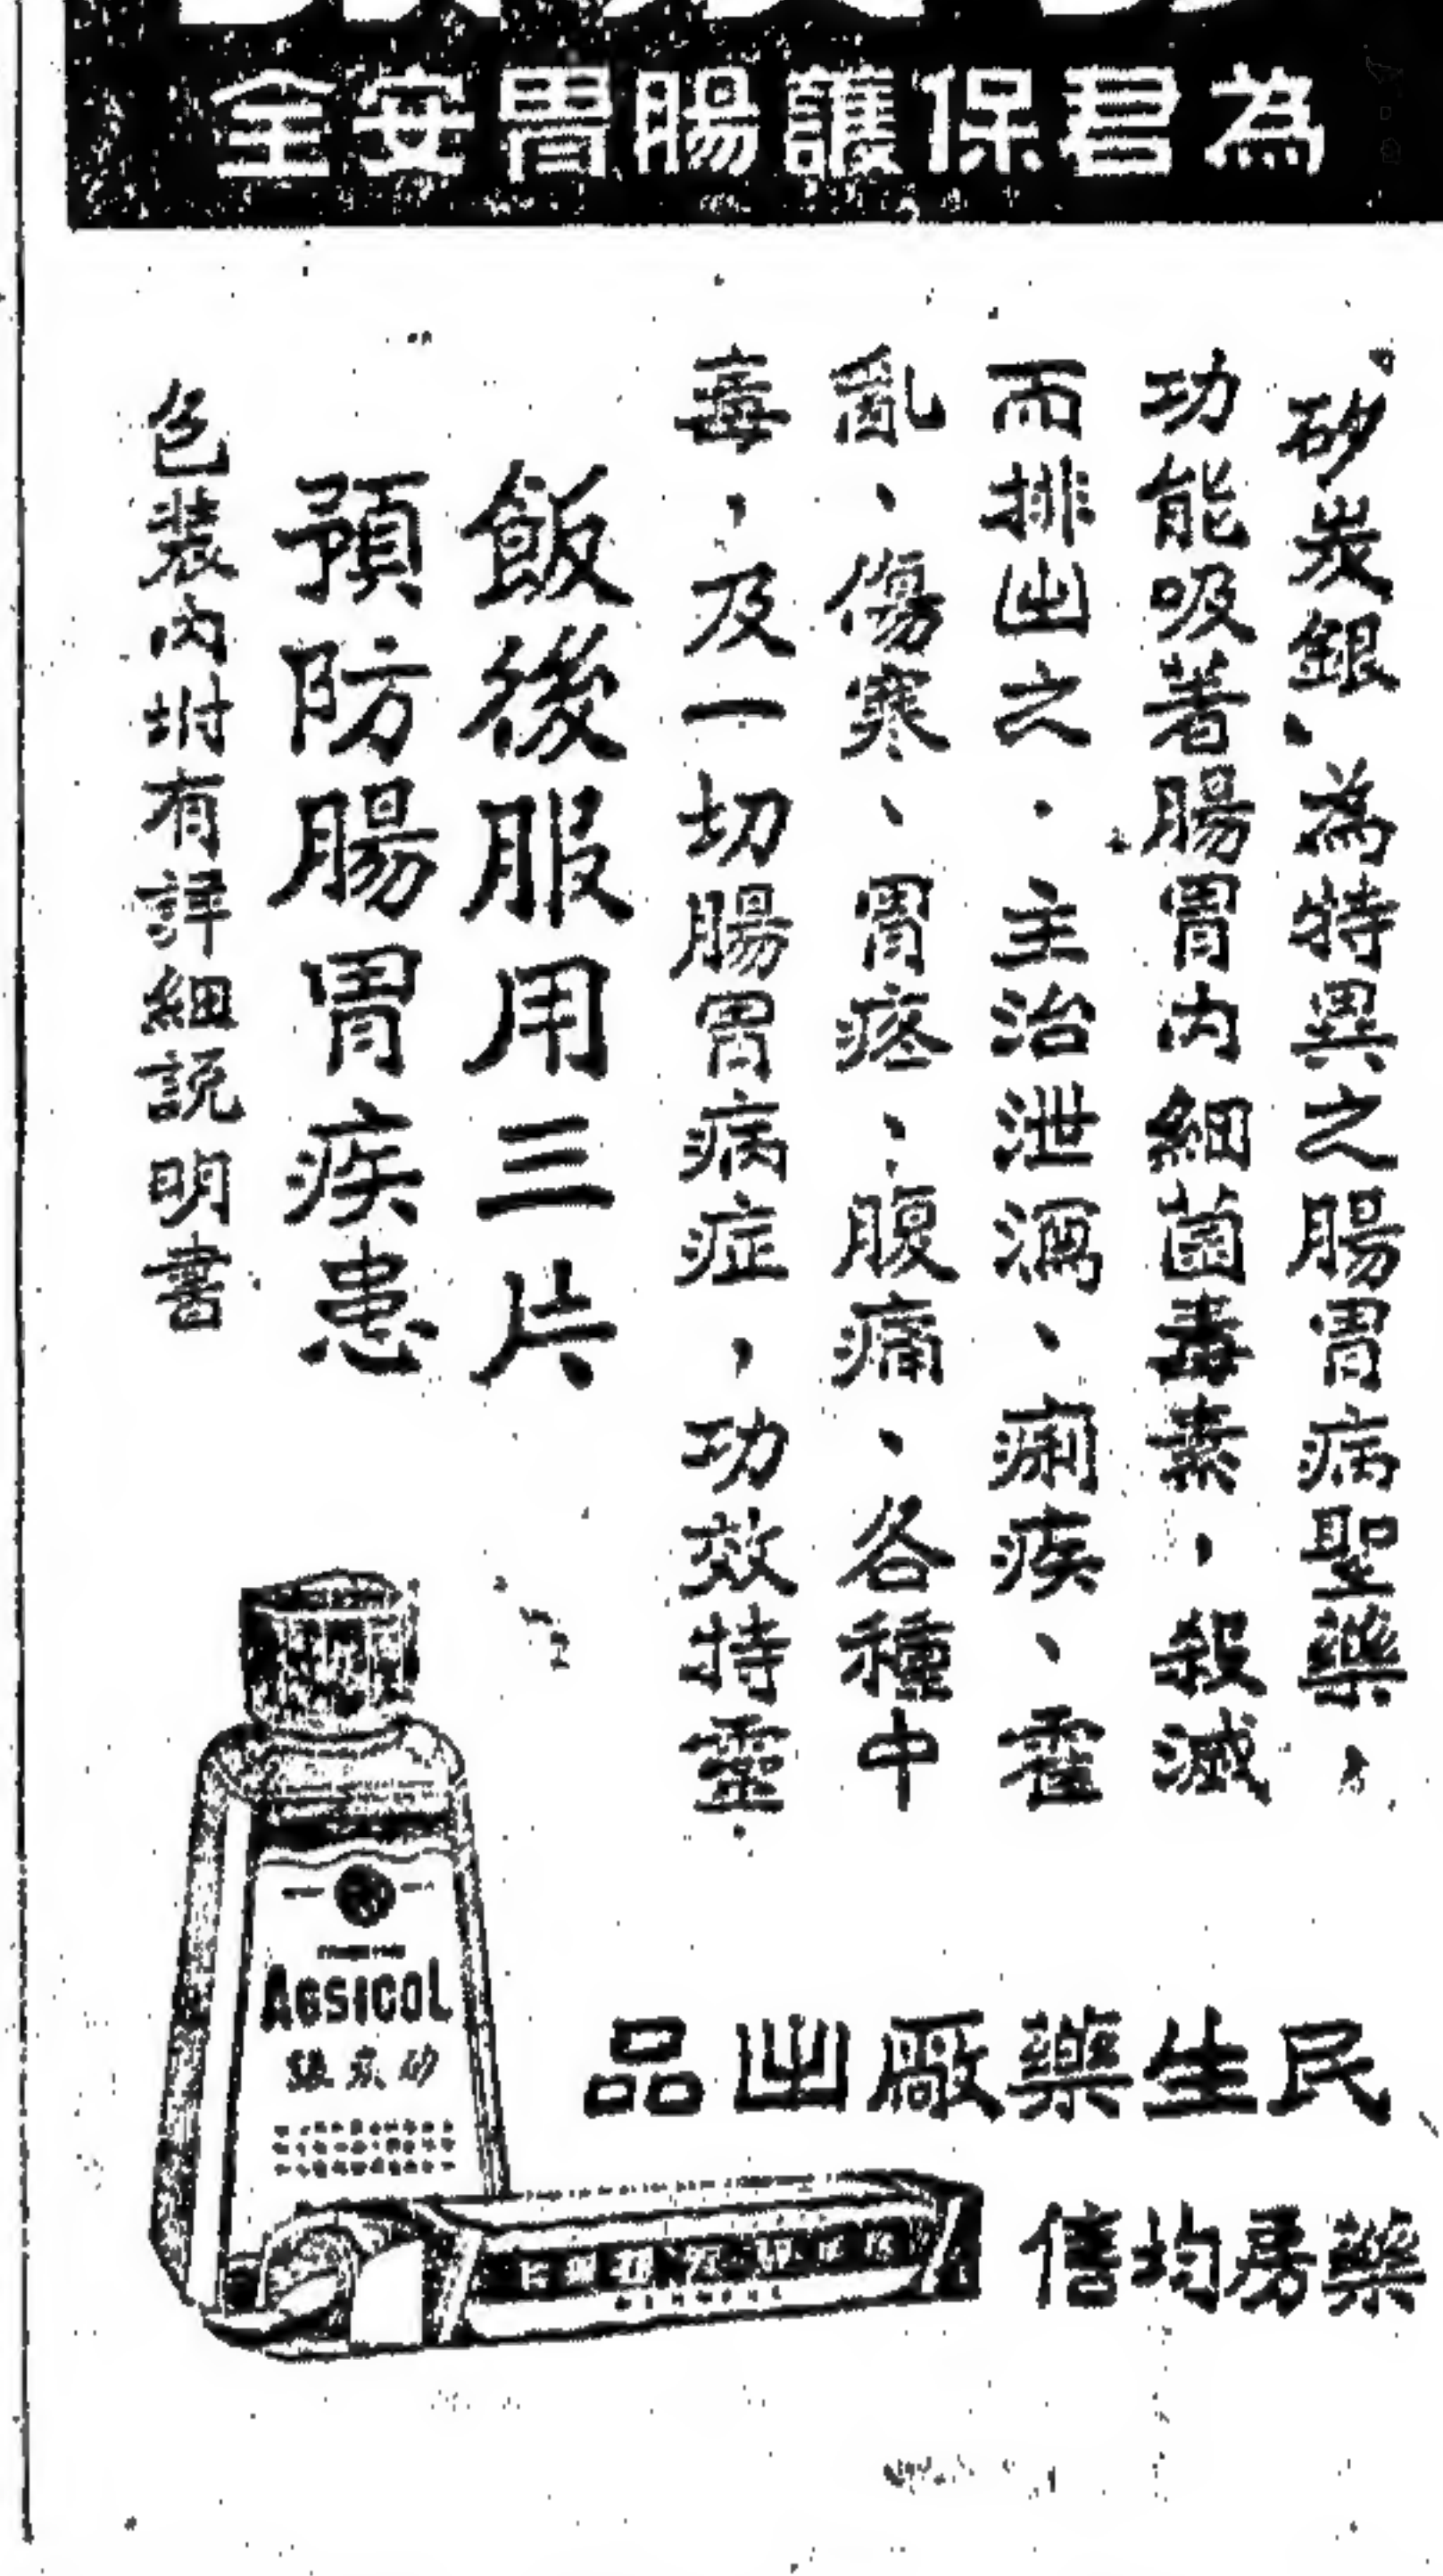 為君保護腸胃安全
砂炭銀、為特異之腸胃病聖藥，
功能吸著腸胃內細菌毒素，殺滅
而排出之．主治泄瀉、痢疾、霍
亂、傷寒、胃疼、腹痛、各種中
毒，及一切腸胃病症，功效特靈．
飯後服用三片
預防腸胃疾患
包裝內坿有詳細說明書
AGSICOL
砂炭銀
民生藥廠出品
藥房均售